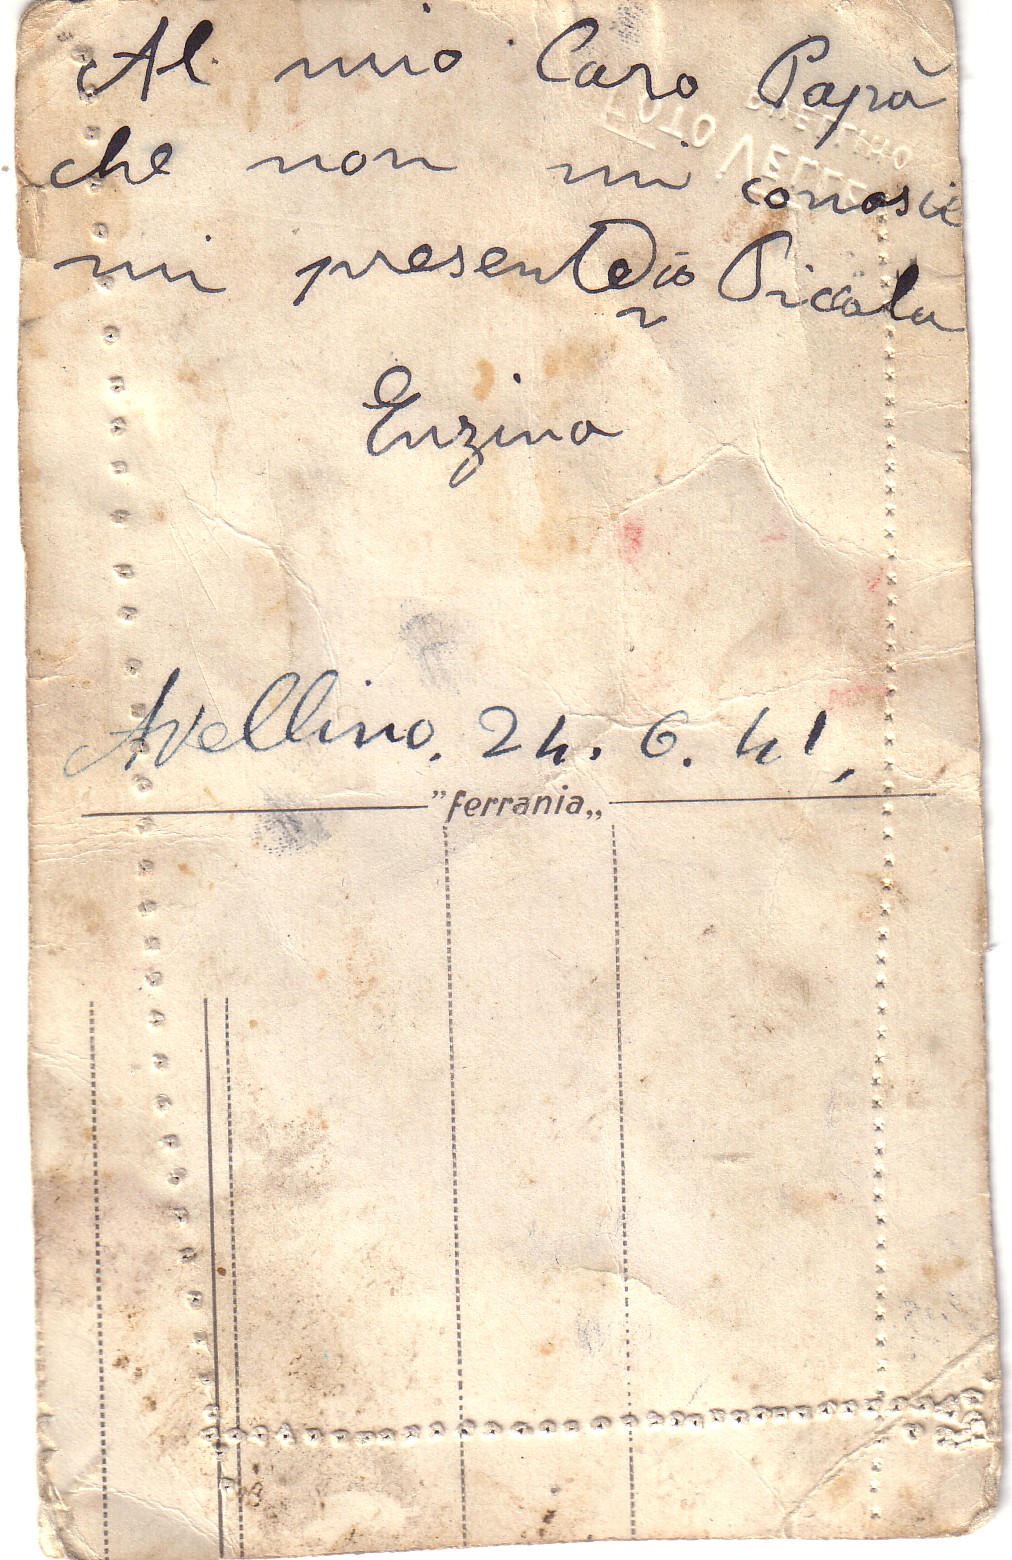 Al mio Caro Papà
che non mi conoscie
mi presento io Piccola
Enzina
Avellino. 24. 6. 41.
"ferrania„
FOTO VELLE